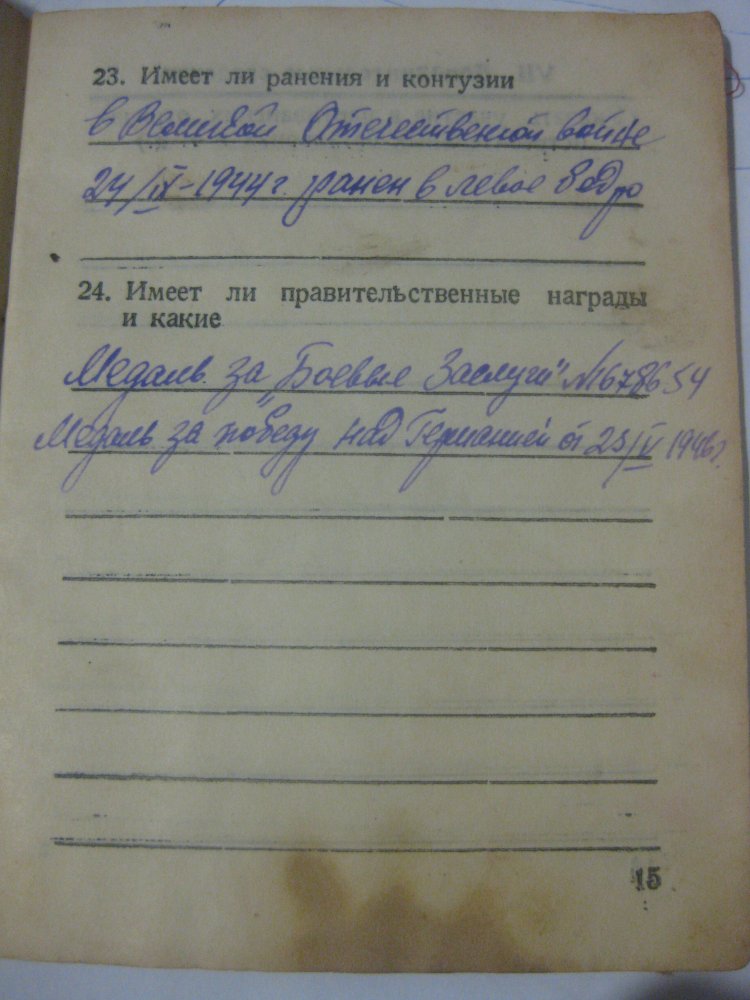 23. Имеет ли ранения и контузии
в Великой Отечественной войне
24/IX-1944 г. ранен в левое бедро
24. Имеет ли правительственные награды
и какие
Медаль за „Боевые Заслуги" №1678654
Медаль за победу над Германией от 25/IV 1946 г.
15